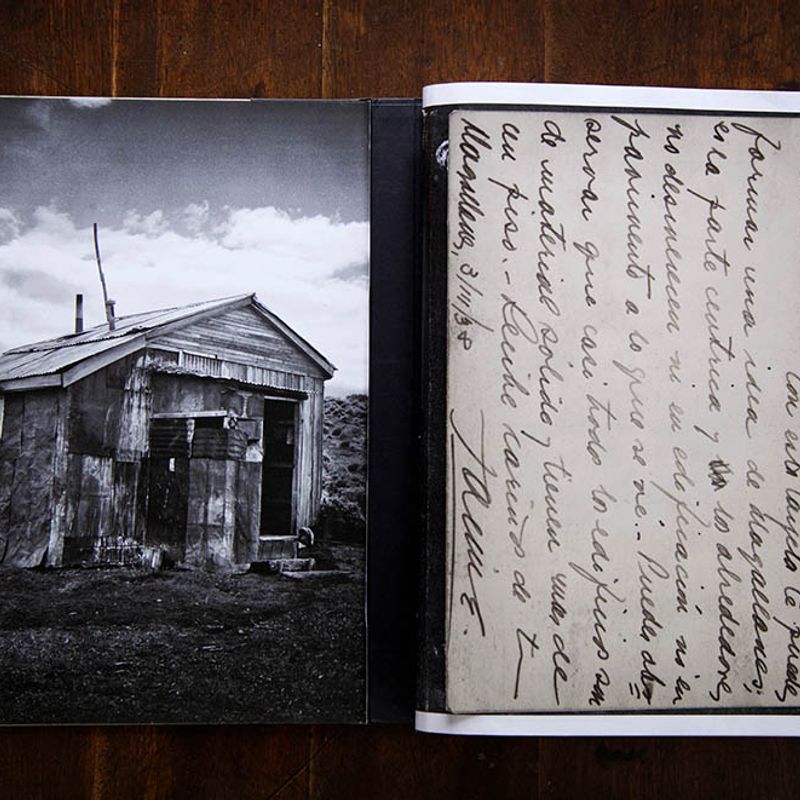 Con esta tarjeta te puedes
formar una idea de Magallanes;
esta parte centrica y los alrededores
no desmerecen ni en edificación ni en
pavimento a lo que se ve.- Puedes ob=
servar que casi todos los edificios son
de material sólido y tienen mas de
un piso.- Recibe cariños de t
Magallanes, 3/11/38